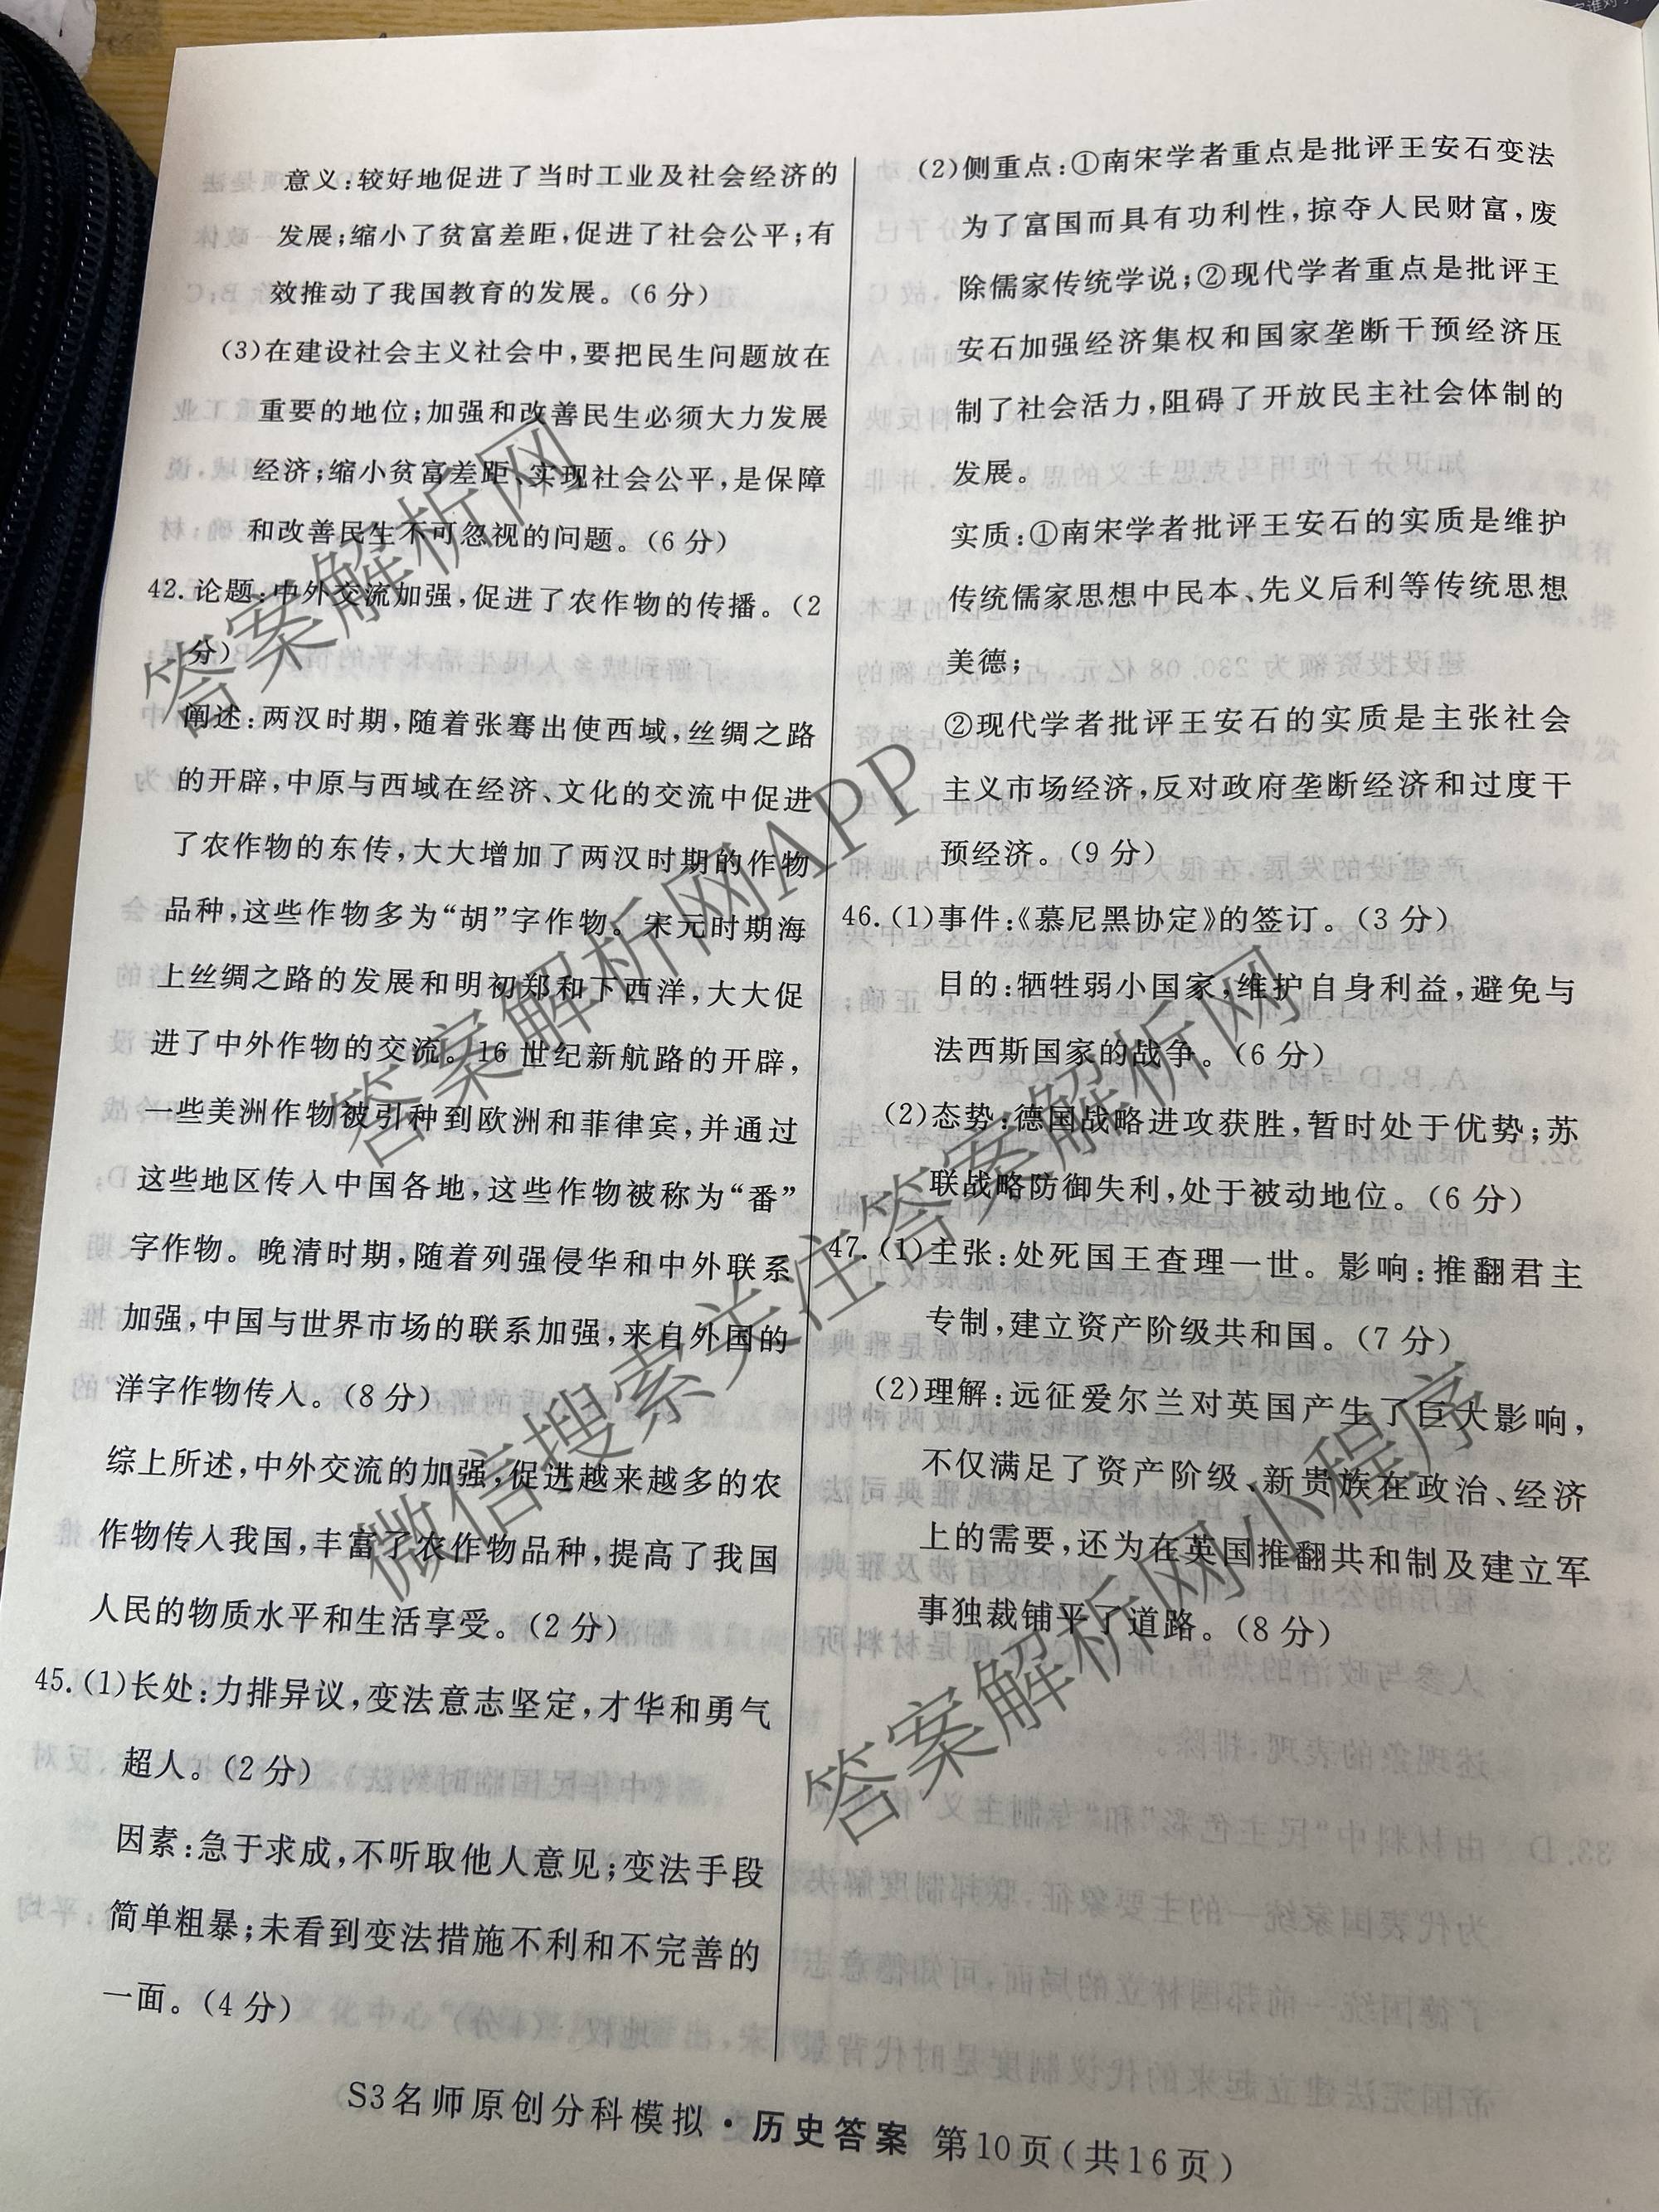 意义:较好地促进了当时工业及社会经济的
发展;缩小了贫富差距,促进了社会公平;有
效推动了我国教育的发展。(6 分)
(3)在建设社会主义社会中,要把民生问题放在
重要的地位;加强和改善民生必须大力发展
经济;缩小贫富差距、实现社会公平,是保障
和改善民生不可忽视的问题。(6 分)
42. 论题:中外交流加强,促进了农作物的传播。(2
分)
阐述:两汉时期,随着张骞出使西域,丝绸之路
的开辟,中原与西域在经济、文化的交流中促进
了农作物的东传,大大增加了两汉时期的作物
品种,这些作物多为“胡”字作物。宋元时期海
上丝绸之路的发展和明初郑和下西洋,大大促
进了中外作物的交流。16 世纪新航路的开辟,
一些美洲作物被引种到欧洲和菲律宾,并通过
这些地区传入中国各地,这些作物被称为“番”
字作物。晚清时期,随着列强侵华和中外联系
加强,中国与世界市场的联系加强,来自外国的
洋字作物传入。(8 分)
综上所述,中外交流的加强,促进越来越多的农
作物传入我国,丰富了农作物品种,提高了我国
人民的物质水平和生活享受。(2 分)
45. (1)长处:力排异议,变法意志坚定,才华和勇气
超人。(2 分)
因素:急于求成,不听取他人意见;变法手段
简单粗暴;未看到变法措施不利和不完善的
一面。(4 分)
(2)侧重点:①南宋学者重点是批评王安石变法
为了富国而具有功利性,掠夺人民财富,废
除儒家传统学说;②现代学者重点是批评王
安石加强经济集权和国家垄断干预经济压
制了社会活力,阻碍了开放民主社会体制的
发展。
实质:①南宋学者批评王安石的实质是维护
传统儒家思想中民本、先义后利等传统思想
美德;
②现代学者批评王安石的实质是主张社会
主义市场经济,反对政府垄断经济和过度干
预经济。(9 分)
46. (1)事件:《慕尼黑协定》的签订。(3 分)
目的:牺牲弱小国家,维护自身利益,避免与
法西斯国家的战争。(6 分)
(2)态势:德国战略进攻获胜,暂时处于优势;苏
联战略防御失利,处于被动地位。(6 分)
47. (1)主张:处死国王查理一世。影响:推翻君主
专制,建立资产阶级共和国。(7 分)
(2)理解:远征爱尔兰对英国产生了巨大影响,
不仅满足了资产阶级、新贵族在政治、经济
上的需要,还为在英国推翻共和制及建立军
事独裁铺平了道路。(8 分)
S3名师原创分科模拟·历史答案 第10页(共16页)
答案解析网
答案解析网APP
微信搜索关注答案解析网
答案解析网小程序